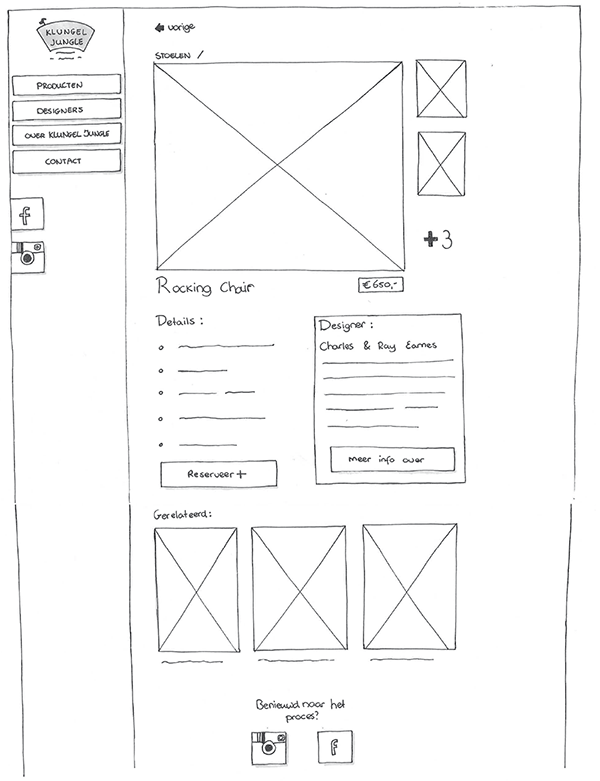 KLUNGEL
JUNGLE
PRODUCTEN
DESIGNERS
OVER KLUNGEL JUNGLE
CONTACT
f
vorige
STOELEN /
+3
Rocking Chair
€650,-
Details:
Reserveer+
Designer:
Charles & Ray Eames
meer info over
Gerelateerd:
Benieuwd naar het
proces?
f